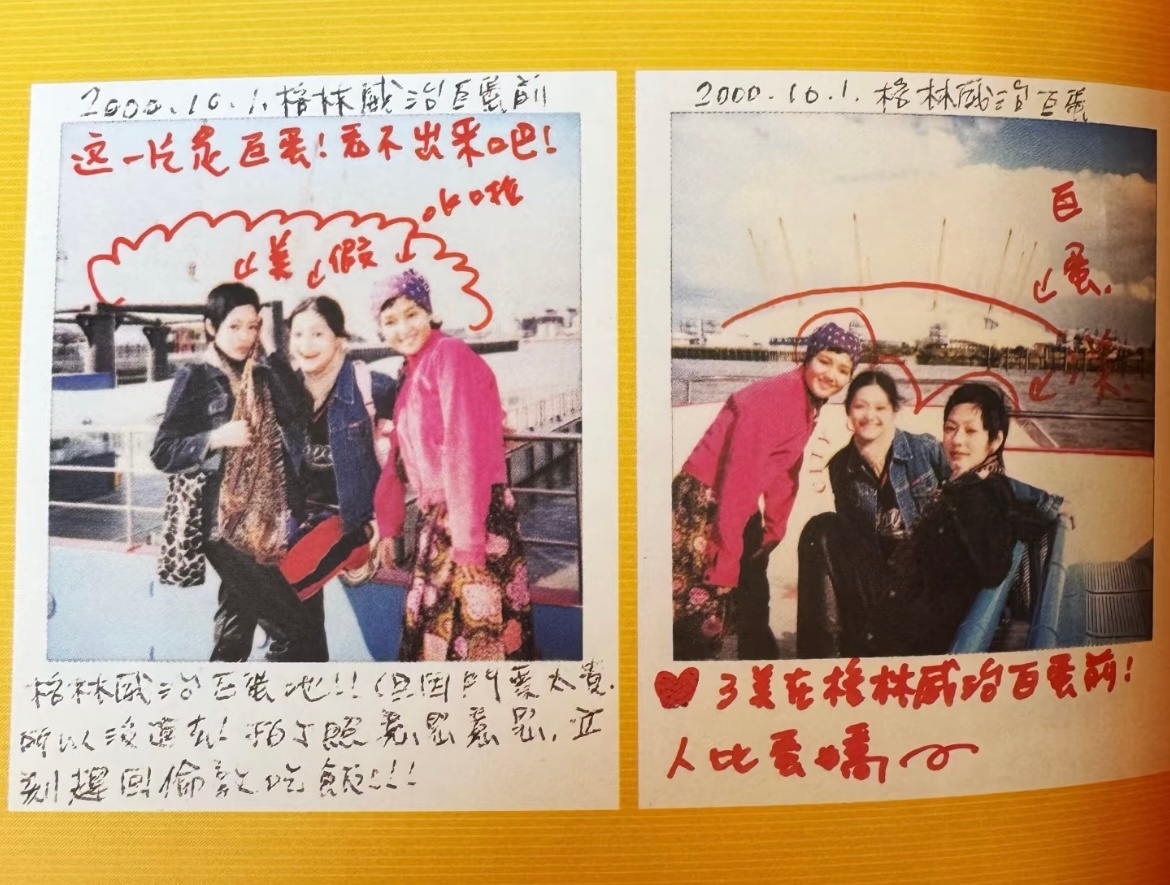 2000.10.1.格林威治巨蛋前
这一片是巨蛋!看不出来吧!
美 假
格林威治巨蛋地!!(但因門票太貴.
所以沒進去!拍了照意思意思,立
刻趕回倫敦吃飯!!!
2000.10.1.格林威治巨蛋
巨
蛋.
CITY
3美在格林威治巨蛋前!
人比蛋嬌